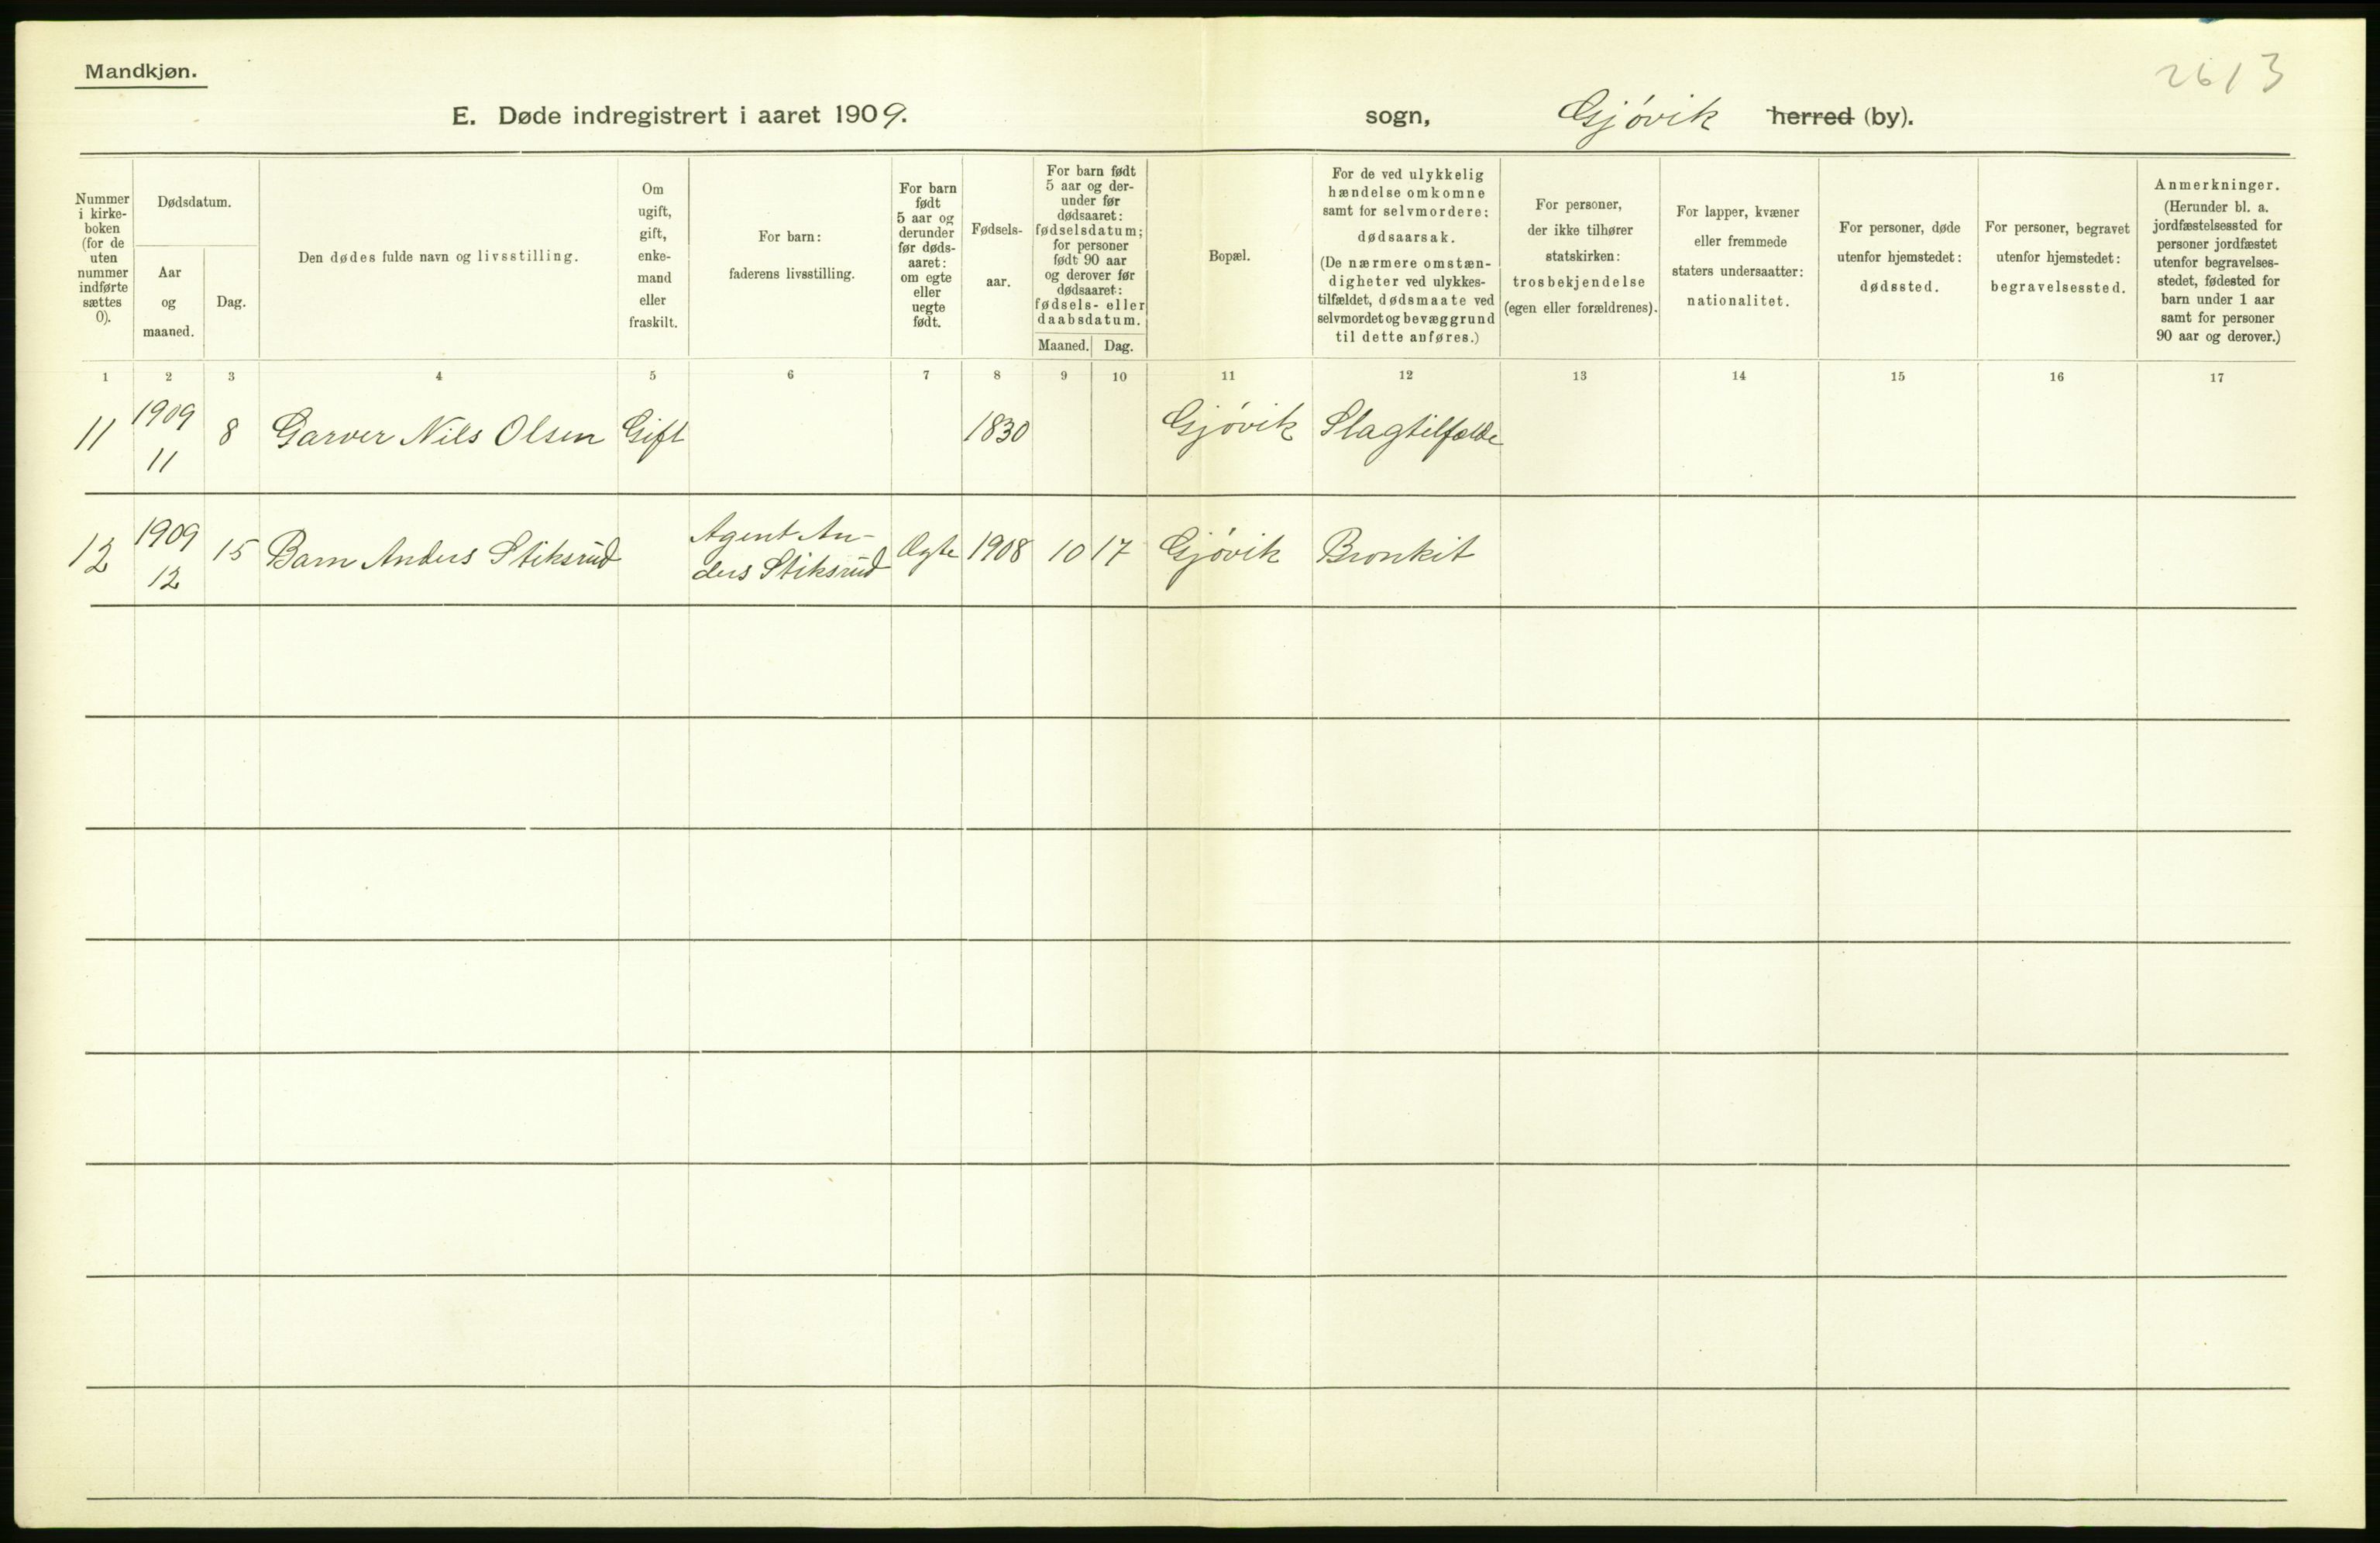 Mandkjøn.
2613
E. Døde indregistrert i aaret 1909.
sogn, Gjøvik herred (by).
Nummer
i kirke-
boken
(for de
uten
nummer
indførte
sættes
0).
Dødsdatum.
Aar
og
maaned.
Dag.
Den dødes fulde navn og livsstilling.
Om
ugift,
gift,
enke-
mand
eller
fraskilt.
For barn:
faderens livsstilling.
For barn
født
5 aar og
derunder
før døds-
aaret:
om egte
eller
uegte
født.
Fødsels-
aar.
For barn født
5 aar og der-
under før
dødsaaret:
fødselsdatum;
for personer
født 90 aar
og derover før
dødsaaret:
fødsels- eller
daabsdatum.
Maaned. Dag.
Bopæl.
For de ved ulykkelig
hændelse omkomne
samt for selvmordere:
dødsaarsak.
(De nærmere omstæn-
digheter ved ulykkes-
tilfældet, dødsmaate ved
selvmordet og bevæggrund
til dette anføres.)
For personer,
der ikke tilhører
statskirken:
trosbekjendelse
(egen eller forældrenes).
For lapper, kvæner
eller fremmede
staters undersaatter:
nationalitet.
For personer, døde
utenfor hjemstedet:
dødssted.
For personer, begravet
utenfor hjemstedet:
begravelsessted.
Anmerkninger.
(Herunder bl. a.
jordfæstelsessted for
personer jordfæstet
utenfor begravelses-
stedet, fødested for
barn under 1 aar
samt for personer
90 aar og derover.)
1 2 3 4 5 6 7 8 9 10 11 12 13 14 15 16 17
11 1909 11 8 Garver Nils Olsen Gift 1830 Gjøvik Slagtilfælde
12 1909 12 15 Barn Anders Stiksrud Agent An-
ders Stiksrud Ægte 1908 10 17 Gjøvik Bronkit